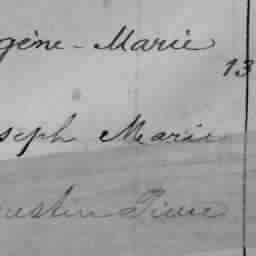 gène-Marie
13
seph Marie
ustin Pierre